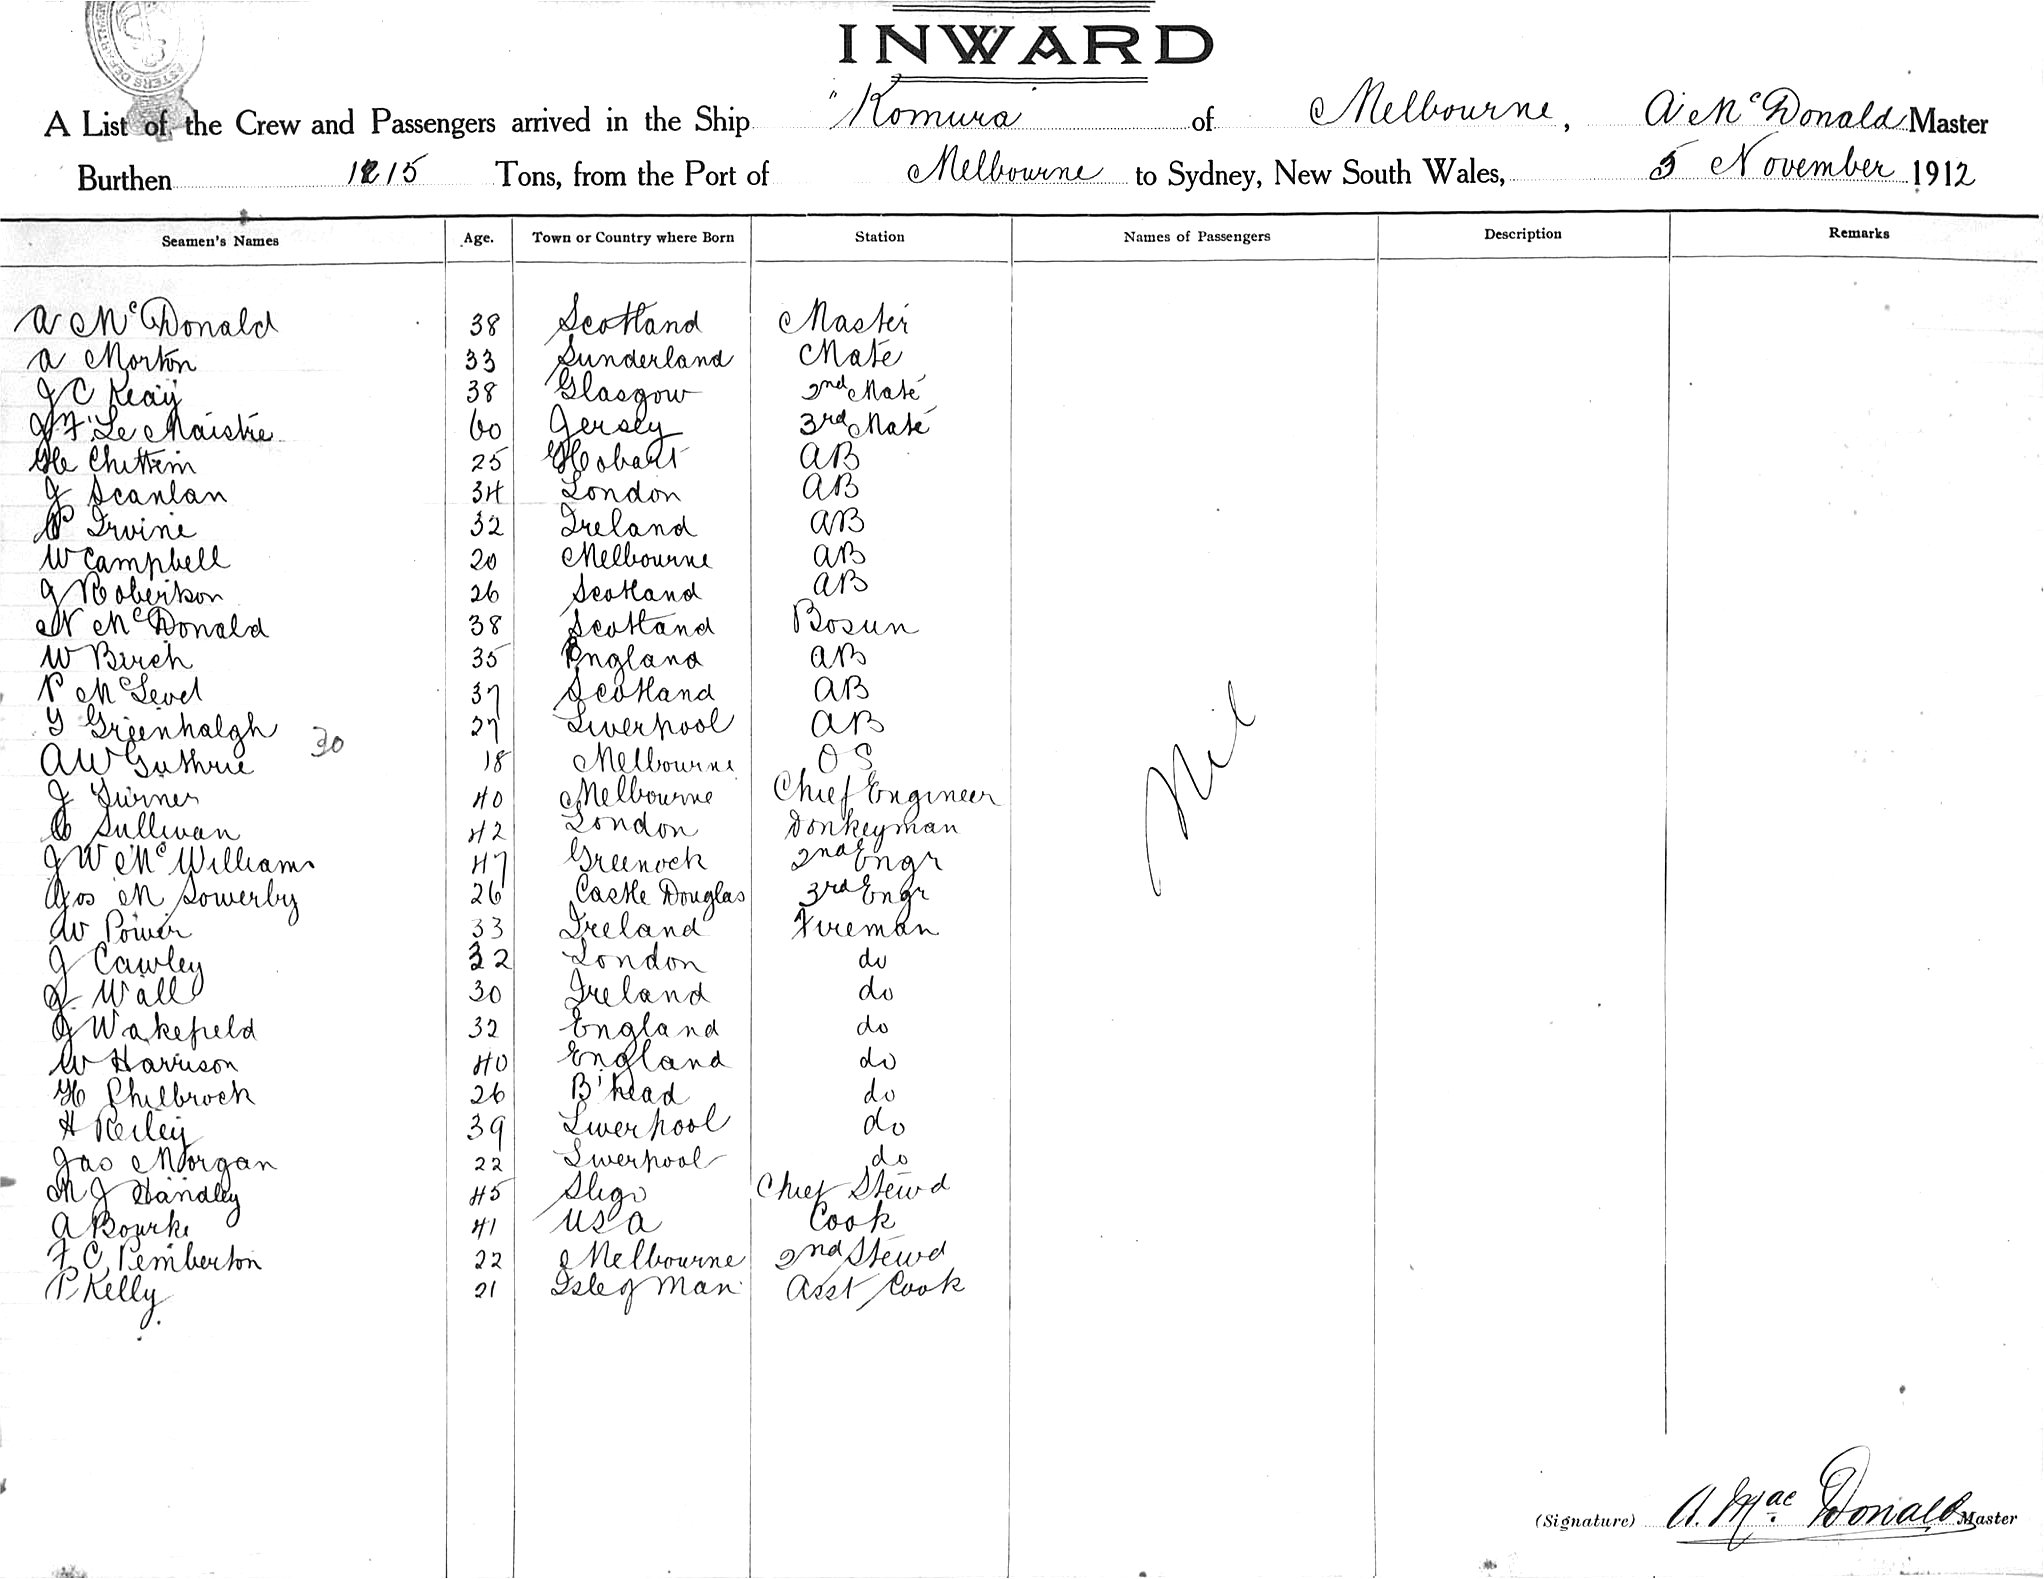 INWARD
A List of the Crew and Passengers arrived in the Ship "Komura" of Melbourne, A McDonald Master
Burthen 1215 Tons, from the Port of Melbourne to Sydney, New South Wales, 5 November 1912
Seamen's Names Age. Town or Country where Born Station Names of Passengers Description Remarks
A McDonald 38 Scotland Master
A Morton 33 Sunderland Mate
J C Keay 38 Glasgow 2nd Mate
J F Le Maistre 60 Jersey 3rd Mate
H Chittim 25 Hobart AB
J Scanlan 34 London AB
P Irvine 32 Ireland AB
W Campbell 20 Melbourne AB
J Robertson 26 Scotland AB
N McDonald 38 Scotland Bosun
W Birch 35 England AB
P McLeod 37 Scotland AB
G Greenhalgh 27 Liverpool AB
30
A W Guthrie 18 Melbourne OS
J Turner 40 Melbourne Chief Engineer
Sullivan 42 London Donkeyman
J W McWilliams 47 Greenock 2nd Engr
Jos M Sowerby 26 Castle Douglas 3rd Engr
W Power 33 Ireland Fireman
J Cawley 32 London do
J Wall 30 Ireland do
J Wakefield 32 England do
W Harrison 40 England do
H Philbrock 26 B'head do
H Reiley 39 Liverpool do
Jas Morgan 22 Liverpool do
M J Handley 45 Sligo Chief Stewd
A Bourke 41 USA Cook
F C Pemberton 22 Melbourne 2nd Stewd
P Kelly 21 Isle of Man Asst Cook
Nil
(Signature) A. MacDonald Master